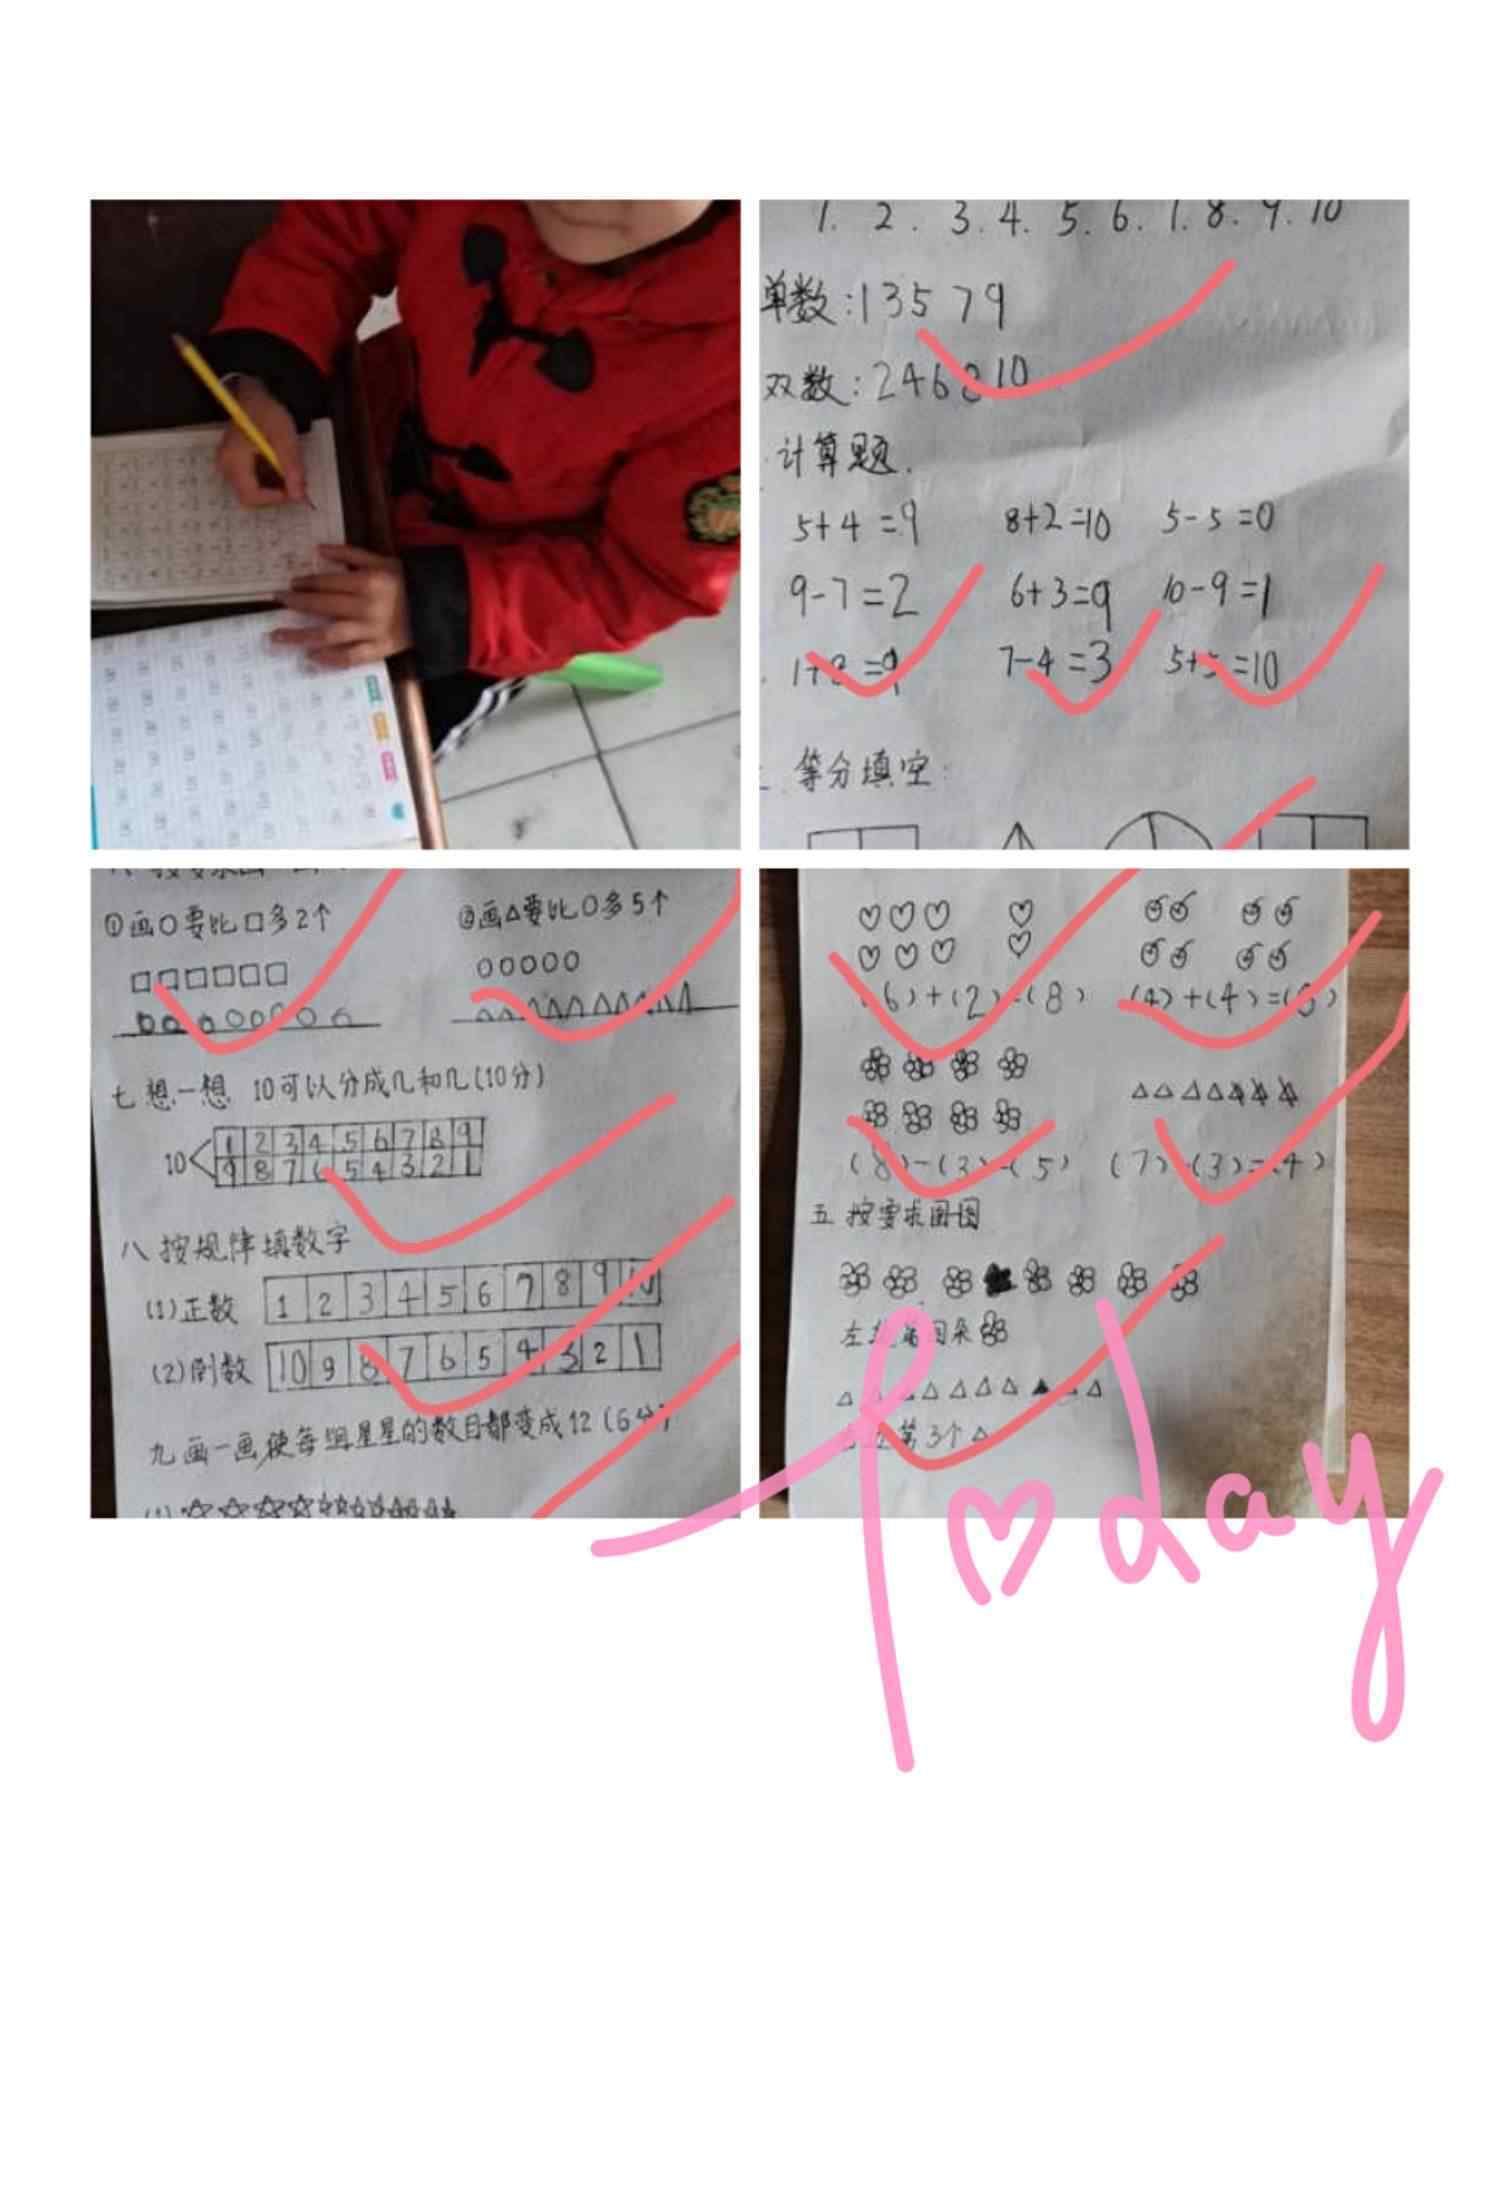 1. 2. 3. 4. 5. 6. 7. 8. 9. 10
单数:13579
双数:246810
计算题.
5+4=9 8+2=10 5-5=0
9-7=2 6+3=9 10-9=1
1+8=9 7-4=3 5+5=10
等分填空:
①画○要比□多2个 ②画△要比○多5个
七 想一想 10可以分成几和几(10分)
1 2 3 4 5 6 7 8 9
10
9 8 7 6 5 4 3 2 1
八 按规律填数字
(1)正数 1 2 3 4 5 6 7 8 9 10
(2)倒数 10 9 8 7 6 5 4 3 2 1
九 画一画,使每组星星的数目都变成12(6分)
(1)
(6)+(2)=(8) (4)+(4)=(8)
(8)-(3)=(5) (7)-(3)=(4)
五 按要求画图
朵
第3个△
Today